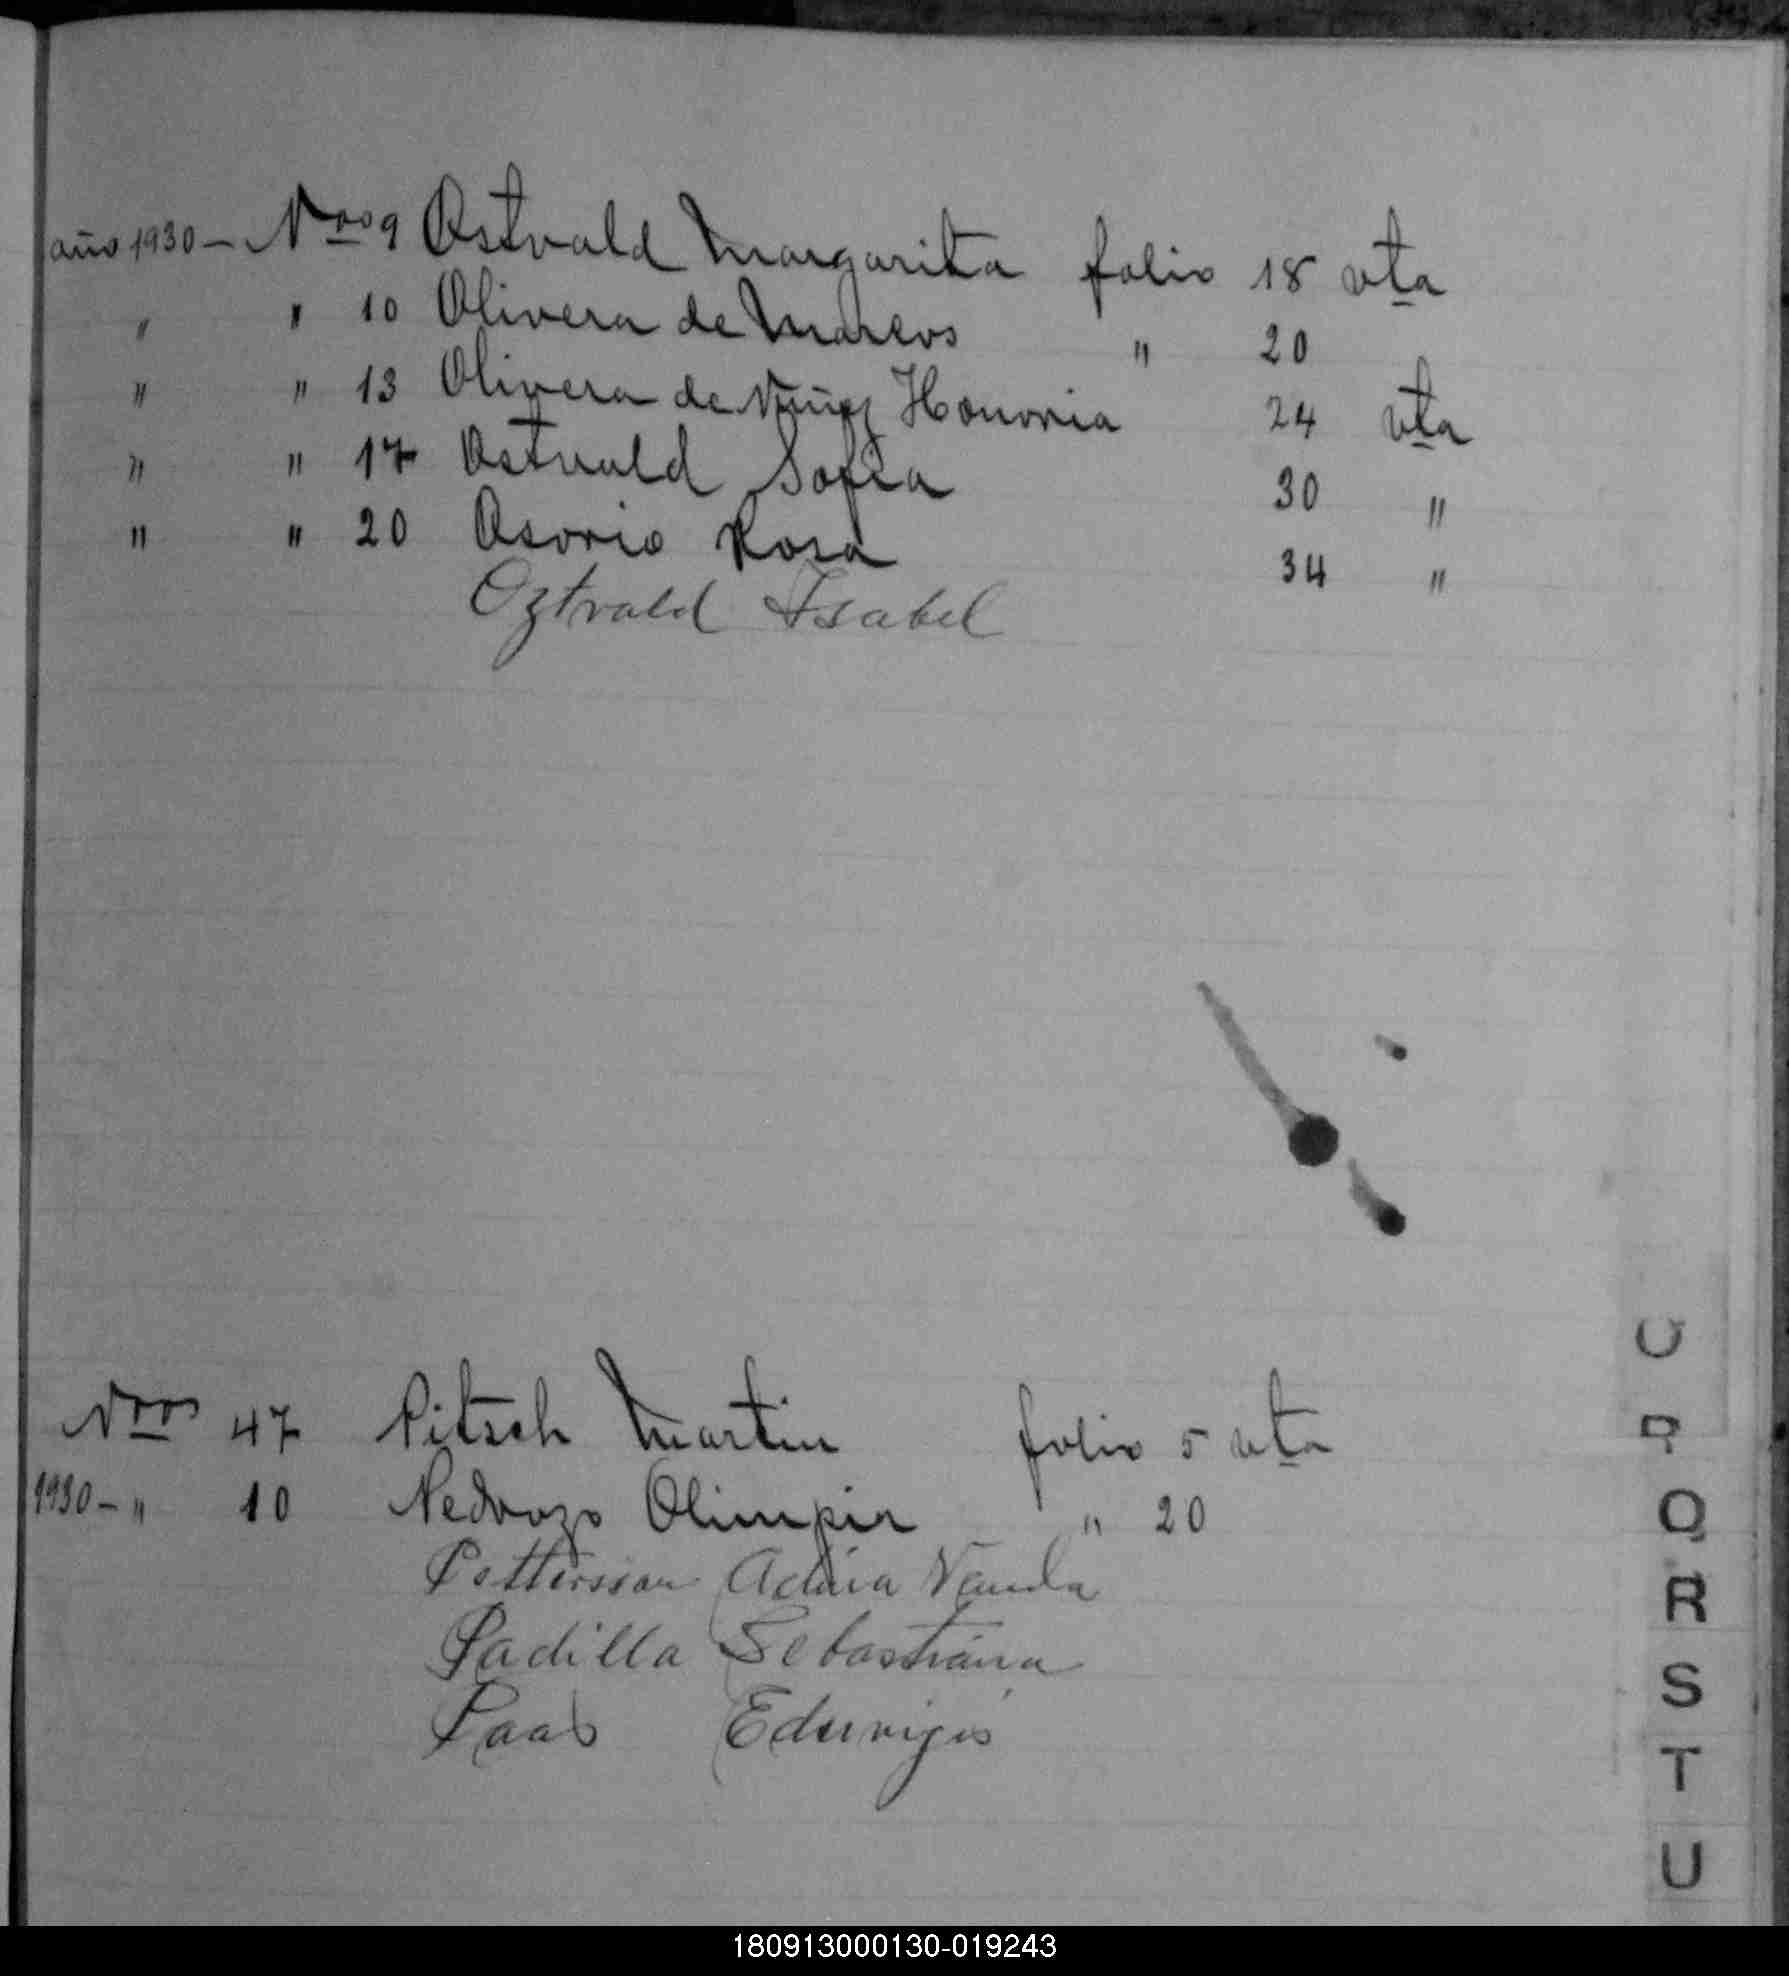 año 1930 - Nros 9 Ostvald Margarita folio 18 vta
" " 10 Olivera de Marcos " 20
" " 13 Olivera de Nuñez Honoria 24 vta
" " 17 Ostvald Sofia 30 "
" " 20 Osorio Rosa 34 "
Oztvald Isabel
Nros 47 Pitsch Martin folio 5 vta
1930 - " 10 Pedrozo Olimpia " 20
Pettersson Vanda
Padilla Sebastiana
Paas Eduvigis
O
P
Q
R
S
T
U
180913000130-019243